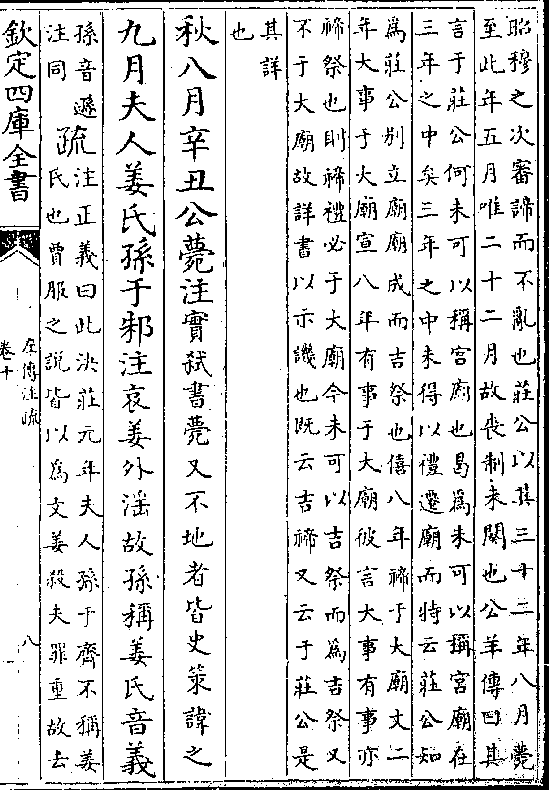 昭穆之次審諦而不亂也莊公以其三十二年八月薨
至此年五月唯二十二月故喪制未闋也公羊傳曰其
言于莊公何未可以稱宮廟也曷為未可以稱宮廟在
三年之中矣三年之中未得以禮遷廟而特云莊公知
為莊公別立廟廟成而吉祭也僖八年禘于大廟文二
年大事于大廟宣八年有事于大廟彼言大事有事亦
禘祭也則禘禮必于大廟今未可以吉祭而為吉祭又
不于大廟故詳書以示譏也既云吉禘又云于莊公是
其詳
也
秋八月辛丑公薨注實弑書薨又不地者皆史策諱之
九月夫人姜氏孫于邾注哀姜外淫故孫稱姜氏音義
孫音遜
注同
疏
注正義曰此決莊元年夫人孫于齊不稱姜
氏也賈服之說皆以為文姜殺夫罪重故去
欽定四庫全書
左傳注疏
卷十
八